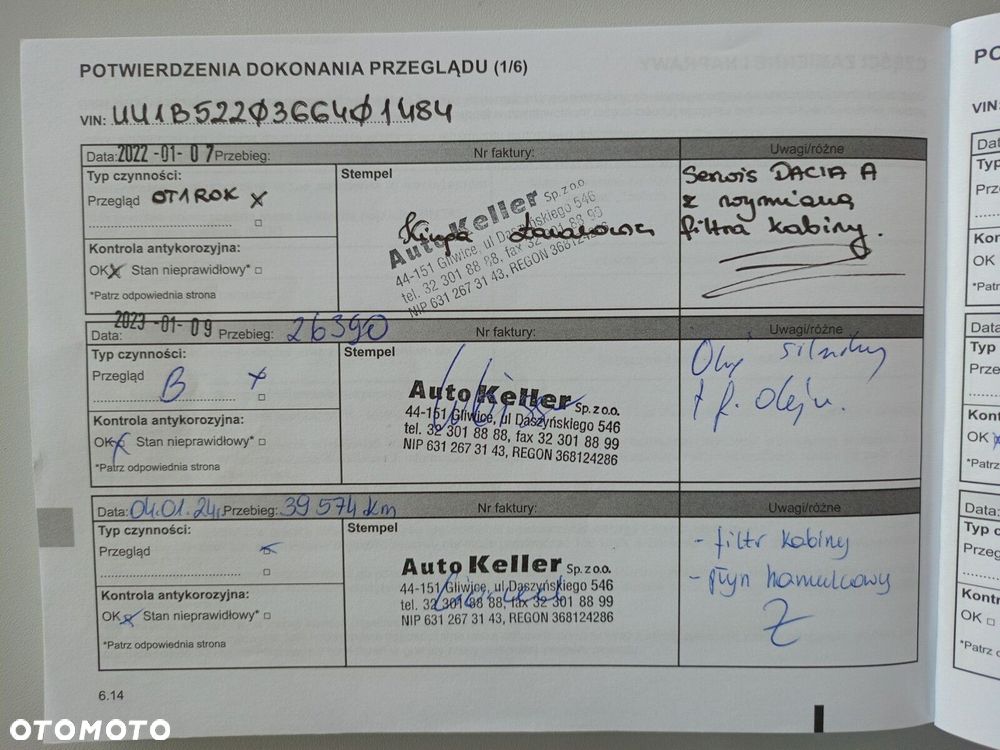 POTWIERDZENIA DOKONANIA PRZEGLĄDU (1/6)
VIN: UU1B5220366401484
Data: 2022-01-07 Przebieg: Nr faktury: Uwagi/różne
Typ czynności:
Przegląd OT1ROK X
Kontrola antykorozyjna:
OK X Stan nieprawidłowy*
*Patrz odpowiednia strona
Stempel
Auto Keller Sp. z o.o.
44-151 Gliwice, ul. Daszyńskiego 546
tel. 32 301 88 88, fax 32 301 88 99
NIP 631 267 31 43, REGON 368124286
Serwis DACIA A
z wymianą
filtra kabiny.
Data: 2023-01-09 Przebieg: 26390 Nr faktury: Uwagi/różne
Typ czynności:
Przegląd B X
Kontrola antykorozyjna:
OK X Stan nieprawidłowy*
*Patrz odpowiednia strona
Stempel
Auto Keller Sp. z o.o.
44-151 Gliwice, ul. Daszyńskiego 546
tel. 32 301 88 88, fax 32 301 88 99
NIP 631 267 31 43, REGON 368124286
Olej silnikowy
+ f. oleju.
Data: 04.01.24r. Przebieg: 39 574 km Nr faktury: Uwagi/różne
Typ czynności:
Przegląd
Kontrola antykorozyjna:
OK Stan nieprawidłowy*
*Patrz odpowiednia strona
Stempel
Auto Keller Sp. z o.o.
44-151 Gliwice, ul. Daszyńskiego 546
tel. 32 301 88 88, fax 32 301 88 99
NIP 631 267 31 43, REGON 368124286
- filtr kabiny
- płyn hamulcowy
6.14
OTOMOTO